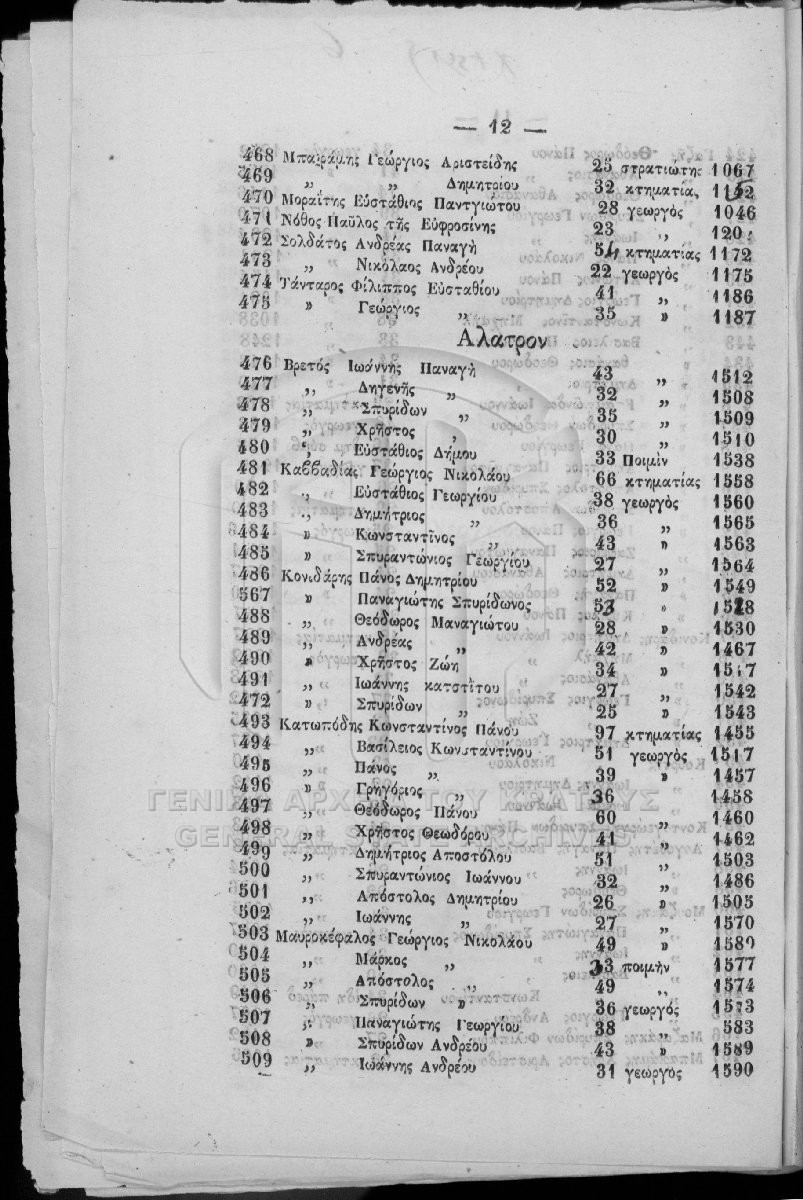 — 12 —
468 Μπαϊράμης Γεώργιος Αριστείδης 25 στρατιώτης 1067
469 „ „ Δημητρίου 32 κτηματίας
470 Μοραΐτης Εὐστάθιος Παντγιώτου 28 γεωργὸς 1046
471 Νόθος Παῦλος τῆς Εὐφροσίνης 23 „ 120
472 Σολδάτος Ανδρέας Παναγῆ 54 κτηματίας 1172
473 „ Νικόλαος Ανδρέου 22 γεωργὸς 1175
474 Τάνταρος Φίλιππος Εὐσταθίου 41 „ 1186
475 » Γεώργιος „ 35 » 1187
Αλατρον
476 Βρετὸς Ιωάννης Παναγῆ 43 „ 1512
477 „ Διγενῆς „ 32 „ 1508
478 „ Σπυρίδων „ 35 „ 1509
479 „ Χρῆστος „ 30 „ 1510
480 „ Εὐστάθιος Δήμου 33 Ποιμὶν 1538
481 Καββαδίας Γεώργιος Νικολάου 66 κτηματίας 1558
482 „ Εὐστάθιος Γεωργίου 38 γεωργὸς 1560
483 „ Δημήτριος „ 36 „ 1565
484 » Κωνσταντῖνος „ 43 » 1563
485 » Σπυραντώνιος Γεωργίου 27 „ 1564
486 Κονιδάρης Πάνος Δημητρίου 52 » 1549
567 » Παναγιώτης Σπυρίδωνος 53 »
488 „ Θεόδωρος Μαναγιώτου 28 » 1530
489 „ Ανδρέας „ 42 » 1467
490 » Χρῆστος Ζώη 34 »
491 „ Ιωάννης κατστίτου 27 „ 1542
472 » Σπυρίδων „ 25 » 1543
493 Κατωπόδης Κωνσταντίνος Πάνου 97 κτηματίας 1455
494 „ Βασίλειος Κωνσταντίνου 51 γεωργὸς 1517
495 „ Πάνος „ 39 » 1457
496 » Γρηγόριος „ 36 1458
497 „ Θεόδωρος Πάνου 60 „ 1460
498 „ Χρῆστος Θεωδόρου 41 „ 1462
499 „ Δημήτριος Αποστόλου 51 „ 1503
500 „ Σπυραντώνιος Ιωάννου 32 „ 1486
501 „ Απόστολος Δημητρίου 26 » 1505
502 „ Ιωάννης „ 27 „ 1570
503 Μαυροκέφαλος Γεώργιος Νικολάου 49 » 1580
504 „ Μάρκος „ 33 ποιμὴν 1577
505 „ Απόστολος „ 49 „ 1574
506 „ Σπυρίδων » 36 γεωργὸς 1573
507 „ Παναγιώτης Γεωργίου 38 „ 583
508 » Σπυρίδων Ανδρέου 43 » 1589
509 „ Ιωάννης Ανδρέου 31 γεωργὸς 1590
ΓΕΝΙΚΑ ΑΡΧΕΙΑ ΤΟΥ ΚΡΑΤΟΥΣ
GENERAL STATE ARCHIVES